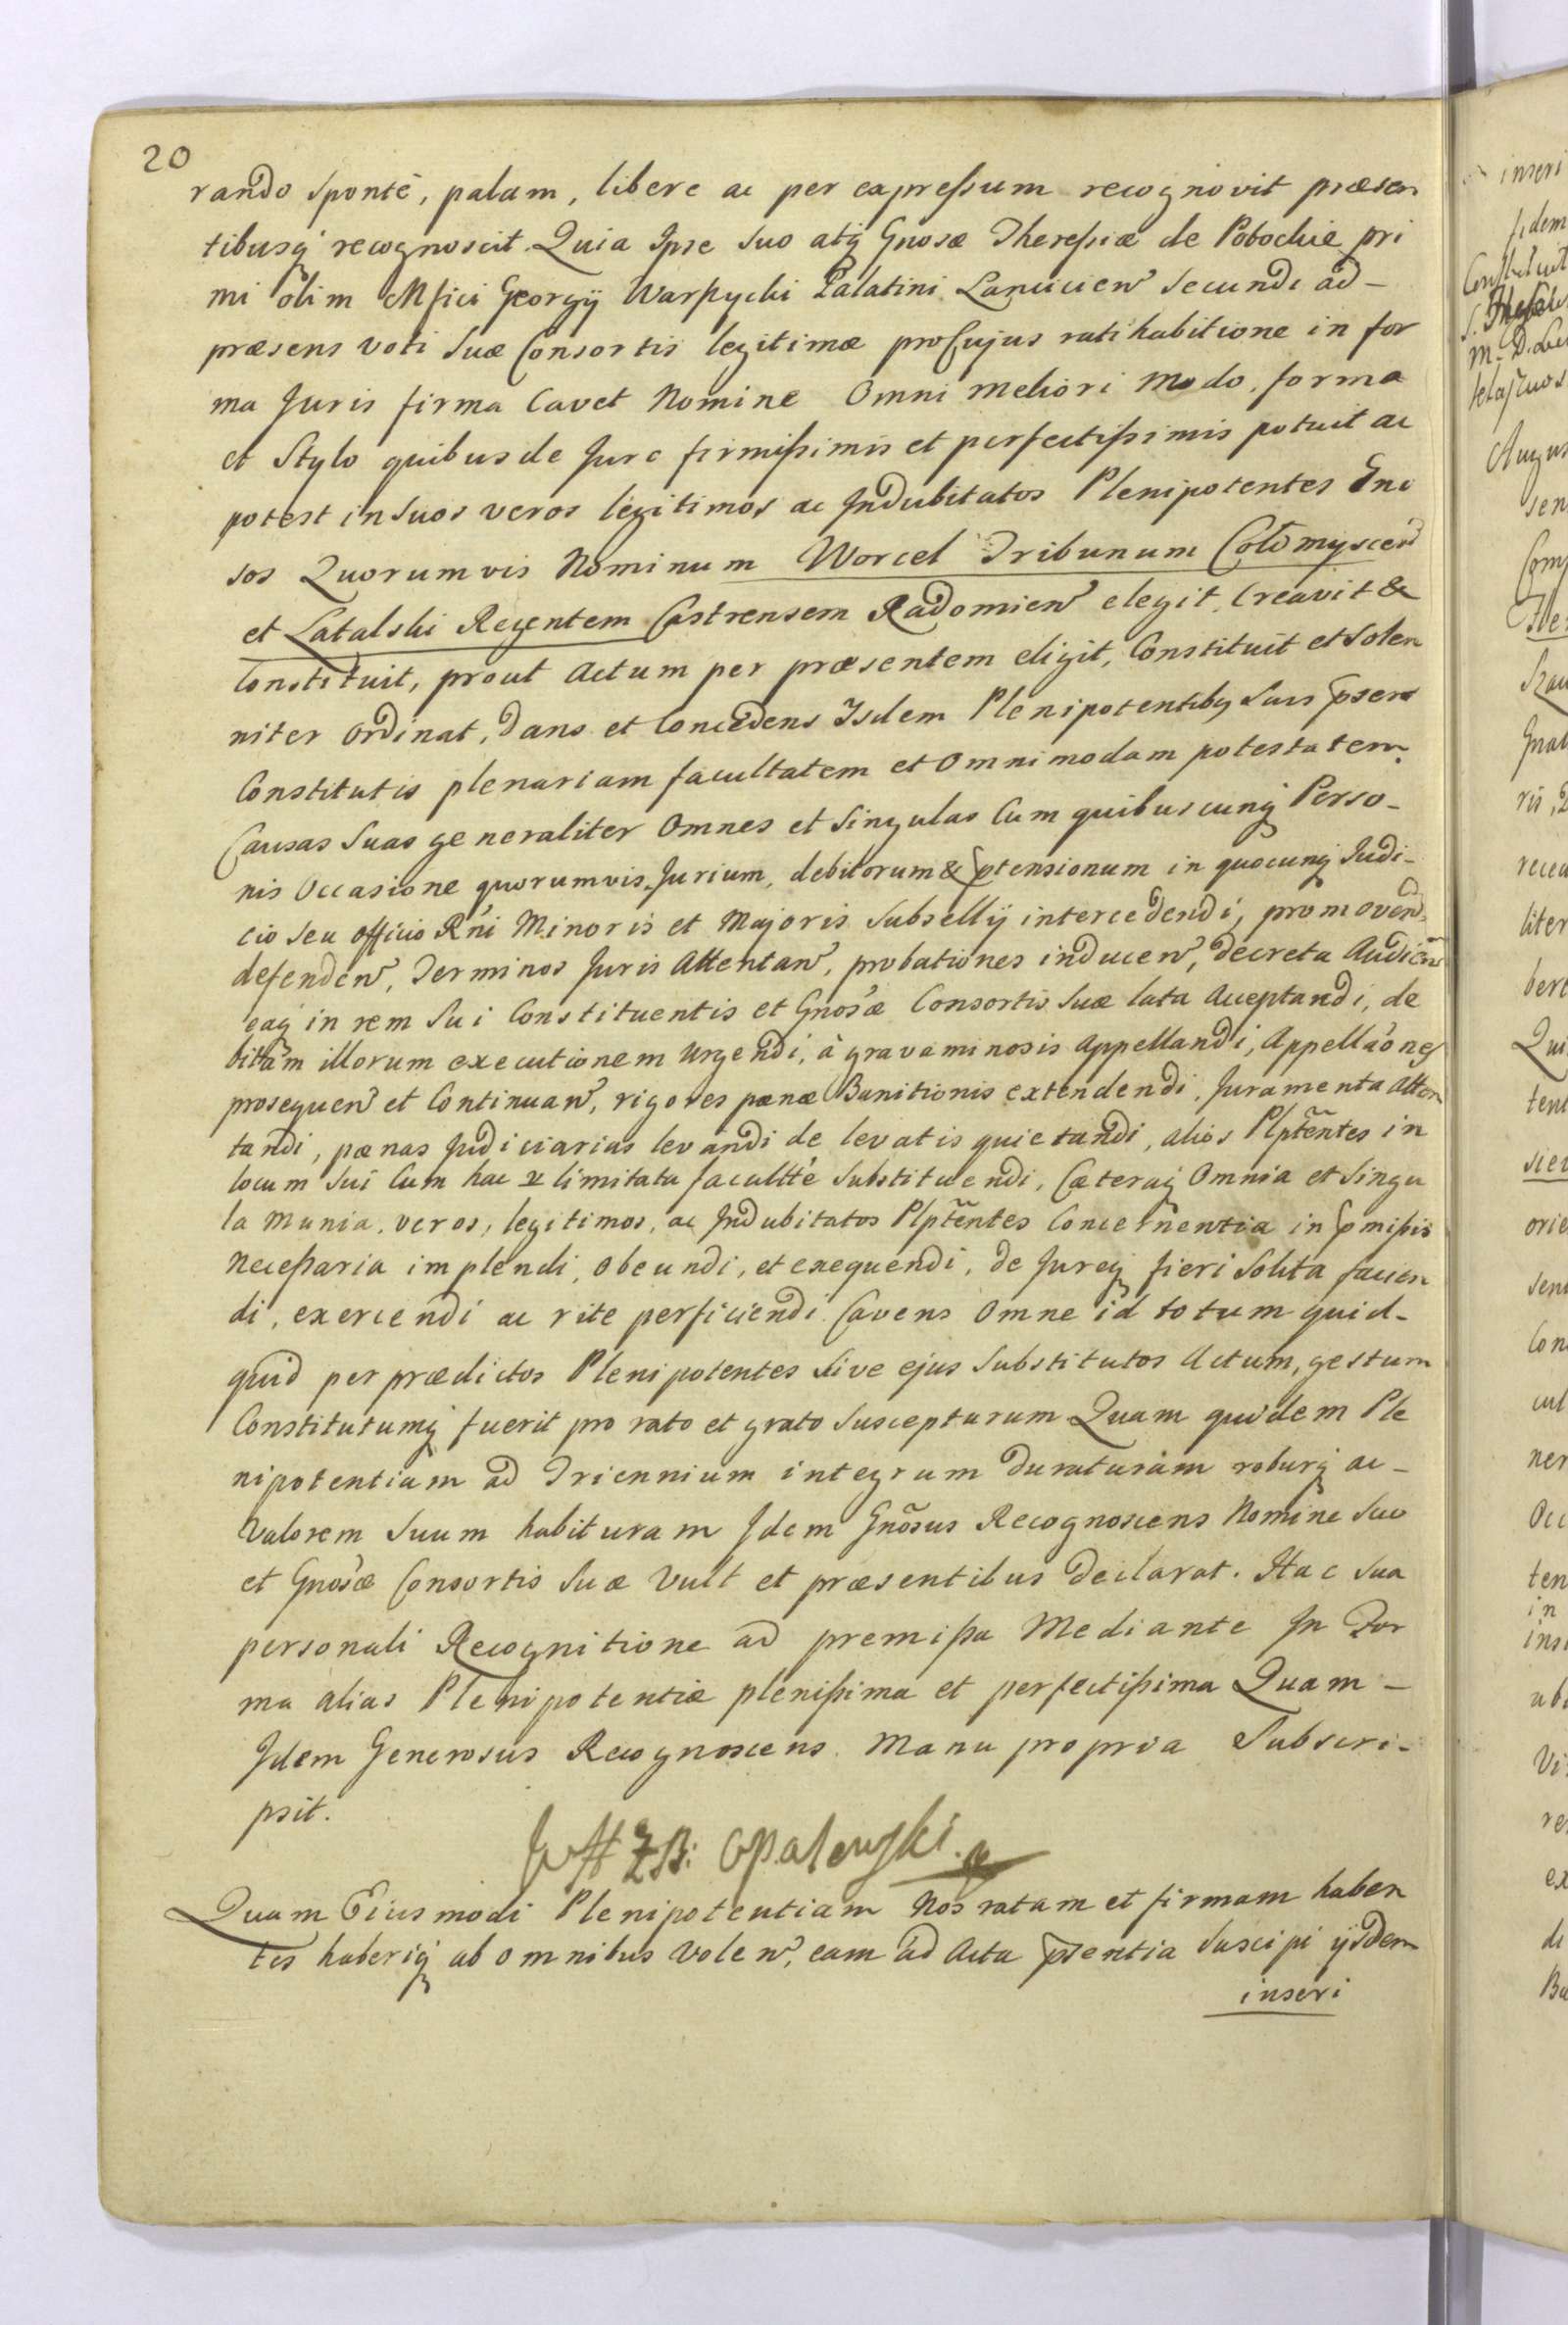 20
rando sponte, palam, libere ac per expressum recognovit præsen
tibusq recognoscit. Quia Ipse suo atq Gnosæ Theressiæ de Pobochie pri
mi olim Mfici Georgÿ Warszycki Palatini Lanciciens secundi ad-
præsens voti suæ Consortis legitimæ pro Cujus ratihabitione in for
ma Juris firma Cavet Nomine Omni meliori modo, forma
et Stylo quibus de Jure firmissimis et perfectissimis potuit ac
potest in suos veros legitimos ac Indubitatos Plenipotentes Gno
sos Quorumvis Nominum Worcel Tribunum Colomyscen
et Latalski Regentem Castrensem Radomien elegit, Creavit &
Constituit, prout Actum per præsentem eligit, Constituit et solen
niter Ordinat, Dans et Concedens Isdem Plenipotentibq Suis psens
Constitutis plenariam facultatem et Omnimodam potestatem.
Causas Suas generaliter Omnes et Singulas Cum quibuscunq Perso-
nis Occasione quorumvis Jurium, debitorum & ptensionum in quocunq Judi-
cio seu officio Rni Minoris et Majoris Subsellÿ intercedendi, promovend
defenden, Terminos Juris Attentan, probationes inducen, decreta Audien
eaq in rem Sui Constituentis et Gnosæ Consortis Suæ lata Acceptandi, de
bitam illorum executionem Urgendi, à gravaminosis Appellandi, Appellaones
prosequen et Continuan, rigores pænæ Banitionis extendendi, Juramenta Atten
tandi, pænas Judiciarias levandi de levatis quietandi, alios Plptentes in
locum Sui Cum hac limitata facultte Substituendi, Cæteraq Omnia et Singu
la Munia, veros, legitimos, ac Indubitatos Plptentes Concernentia in pmissis
Necessaria implendi, obeundi, et exequendi, de Jureq fieri Solita facien
di, exercendi ac rite perficiendi. Cavens Omne id totum quid-
quid per prædictos Plenipotentes sive ejus Substitutos Actum, gestum
Constitutumq fuerit pro rato et grato Suscepturum Quam quidem Ple
nipotentiam ad Triennium integrum duraturam roburq ac-
Valorem Suum habituram Idem Gnosus Recognoscens Nomine Suo
et Gnosæ Consortis Suæ Vult et præsentibus declarat. Hac Sua
personali Recognitione ad premissa Mediante In For
ma alias Plenipotentiæ plenissima et perfectissima Quam-
Idem Generosus Recognoscens Manu propria Subscri-
psit.
Quam Eiusmodi Plenipotentiam Nos ratam et firmam haben
tes haberiq ab omnibus Volen, eam ad Acta psentia Suscipi ÿsdem
inseri